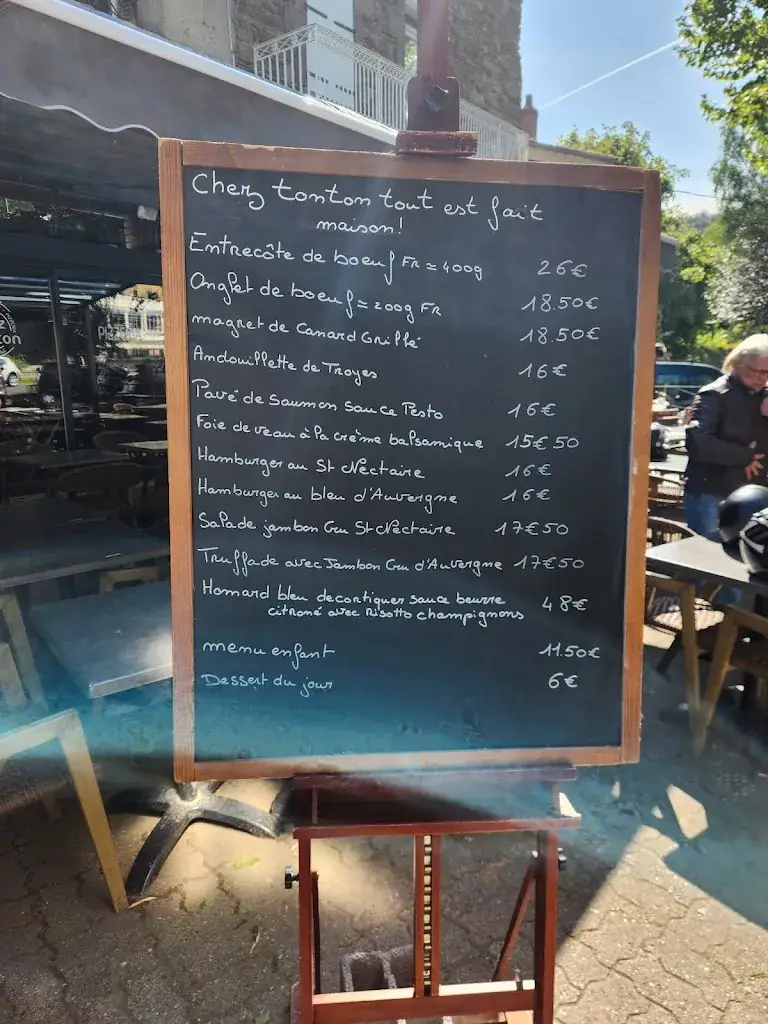 Chez tonton tout est fait
maison!
Entrecôte de boeuf FR = 400g 26€
Onglet de boeuf = 200g FR 18.50€
magret de Canard Grillé 18.50€
Andouillette de Troyes 16€
Pavé de Saumon sauce Pesto 16€
Foie de veau à la crème balsamique 15€50
Hamburger au St Nectaire 16€
Hamburger au bleu d'Auvergne 16€
Salade jambon Cru St Nectaire 17€50
Truffade avec Jambon Cru d'Auvergne 17€50
Homard bleu decortiquer sauce beurre
citroné avec Risotto champignons 48€
menu enfant 11.50€
Dessert du jour 6€